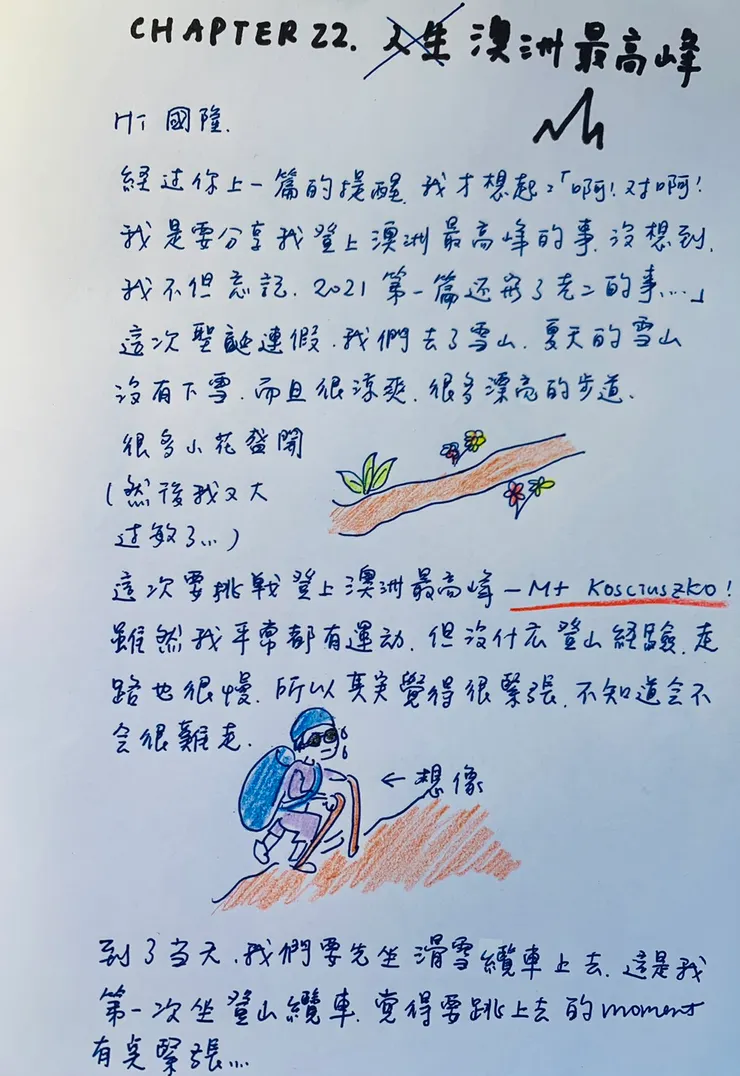 CHAPTER 22. 人生 澳洲最高峰
HI 國隆.
経过你上一篇的提醒, 我才想起:「啊! 对啊!
我是要分享我登上澳洲最高峰的事, 沒想到,
我不但忘記, 2021 第一篇还寫了老二的事...」
這次聖誕連假, 我們去了雪山, 夏天的雪山
沒有下雪, 而且很涼爽, 很多漂亮的步道.
很多小花盛開
(然後我又大
过敏了...)
這次要挑戦登上澳洲最高峰 — Mt Kosciuszko!
雖然我平常都有運动, 但沒什広登山経驗, 走
路也很慢, 所以其実覺得很緊張, 不知道会不
会很難走.
← 想像
到了当天, 我們要先坐滑雪纜車上去, 這是我
第一次坐登山纜車, 覚得要跳上去的 moment
有点緊張...